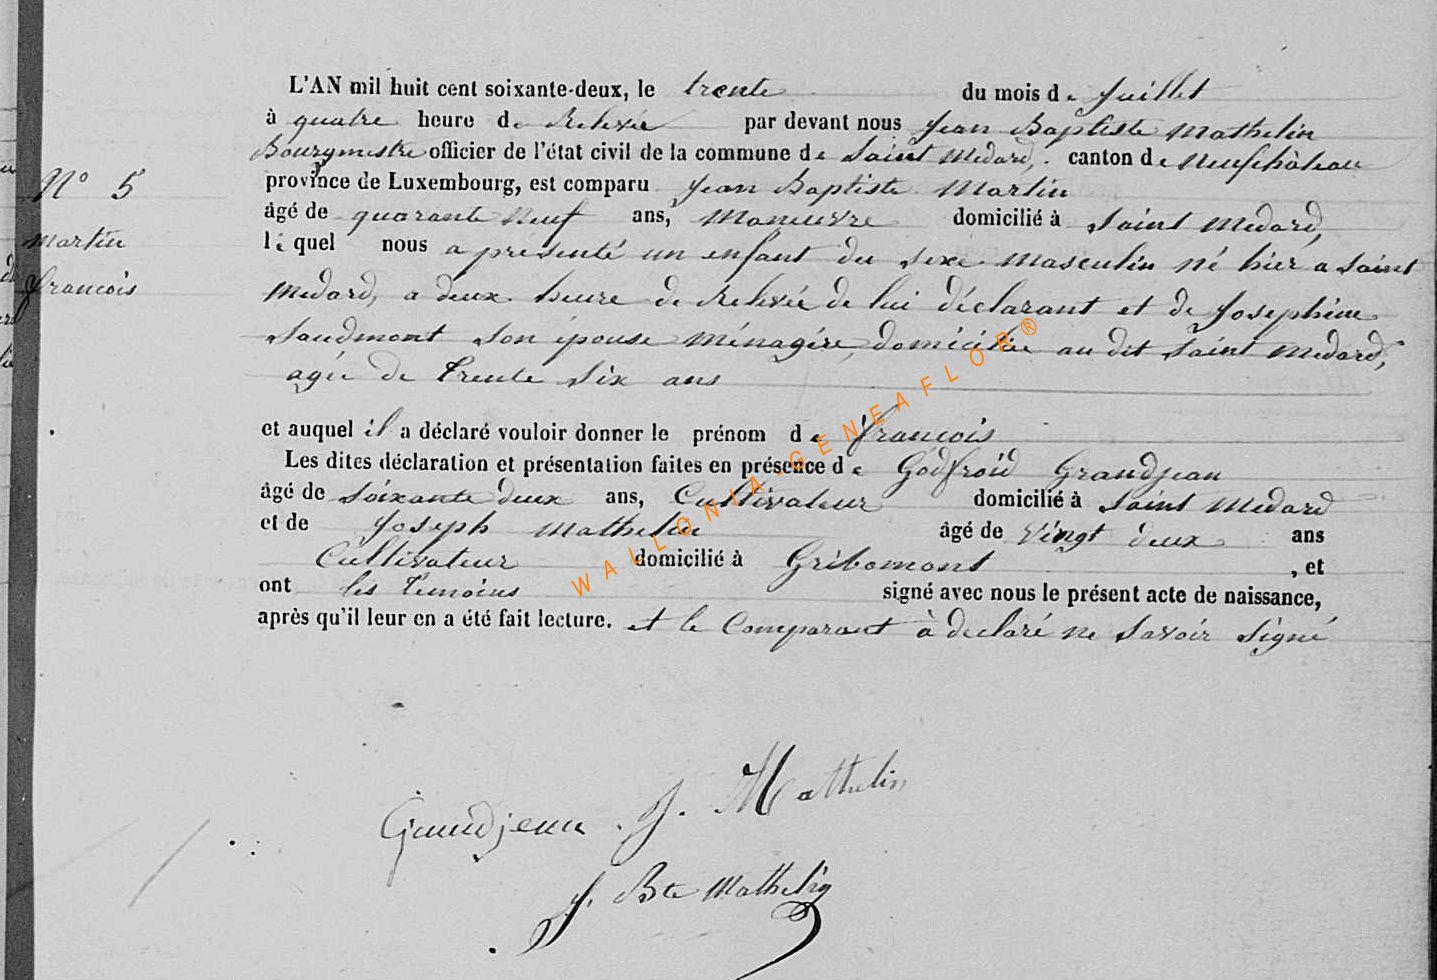 L'AN mil huit cent soixante-deux, le trente du mois de Juillet
à quatre heure de Relevée par devant nous Jean Baptiste Mathelin
Bourgmestre officier de l'état civil de la commune de Saint Medard, canton de Neufchâteau
N° 5
province de Luxembourg, est comparu Jean Baptiste Martin
âgé de quarante Neuf ans, Manœuvre domicilié à Saint Medard,
Martin
le quel nous a présenté un enfant du sexe Masculin né hier a Saint
francois
Medard, a deux heure de Relevée de lui déclarant et de Josephine
Saudmont son épouse Ménagére, domiciliée au dit Saint Medard,
agée de trente Six ans
et auquel il a déclaré vouloir donner le prénom de francois
Les dites déclaration et présentation faites en présence de Godfroid Grandjean
âgé de Soixante deux ans, Cultivateur domicilié à Saint Medard
et de Joseph Mathelin âgé de Vingt deux ans
Cultivateur domicilié à Gribomont , et
ont les temoins signé avec nous le présent acte de naissance,
après qu'il leur en a été fait lecture. et le Comparant à declaré ne Savoir Signé
Grandjean J. Mathelin
J. Bte Mathelin
WALLONIA-GENEAFLOR®